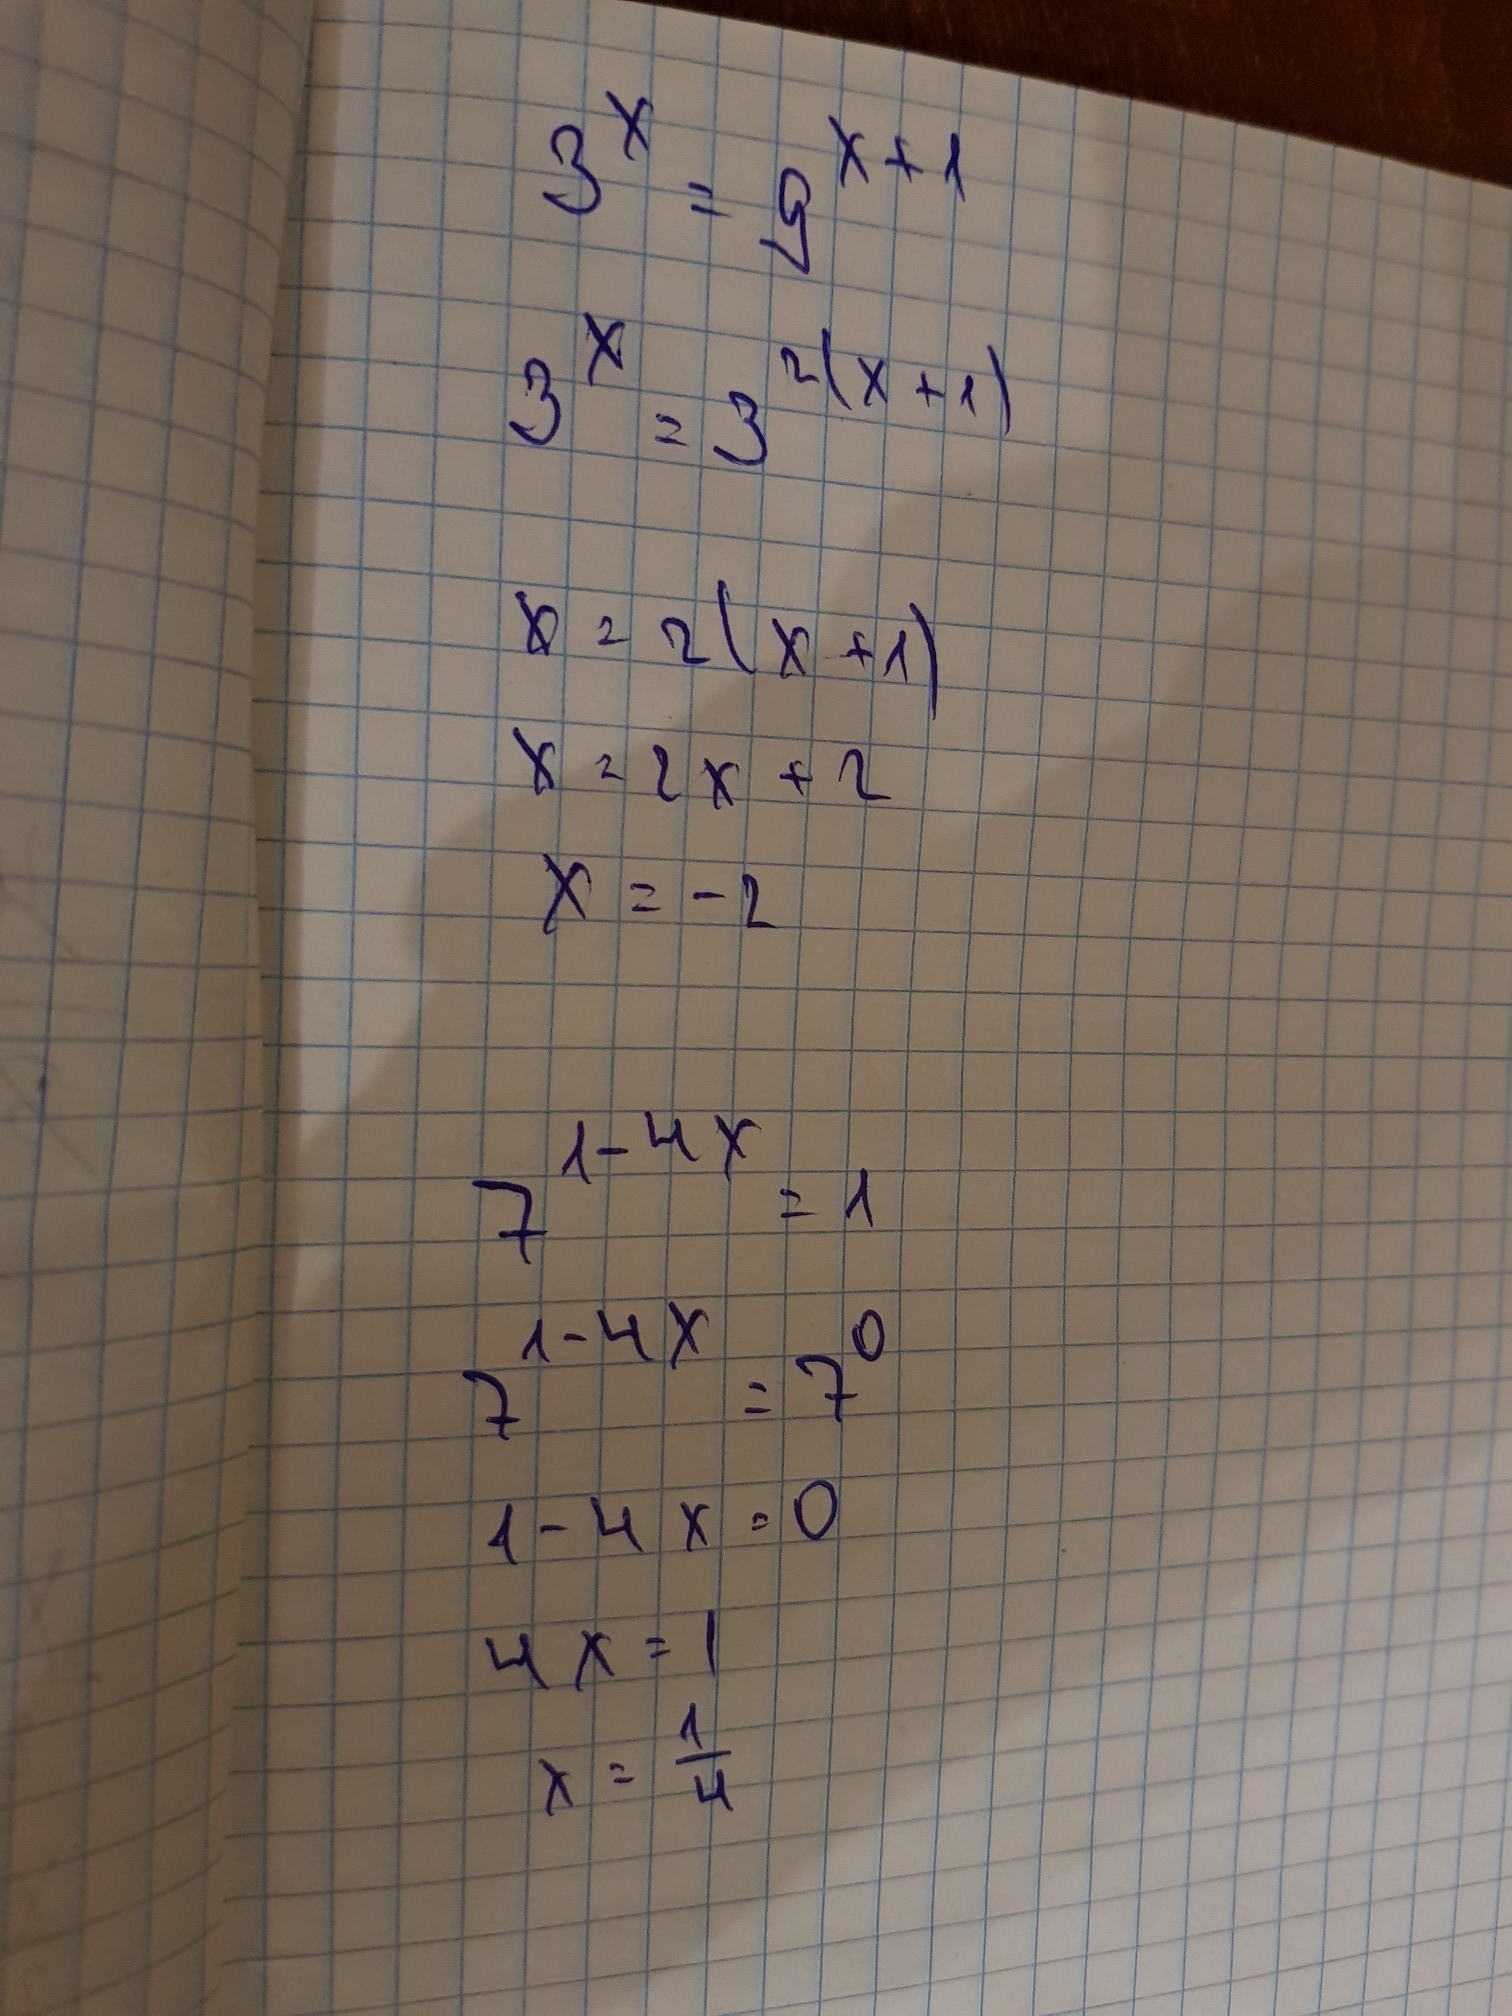 3^x = 9^{x+1}
3^x = 3^{2(x+1)}
x = 2(x+1)
x = 2x + 2
x = -2
7^{1-4x} = 1
7^{1-4x} = 7^0
1-4x=0
4x=1
x = \frac{1}{4}